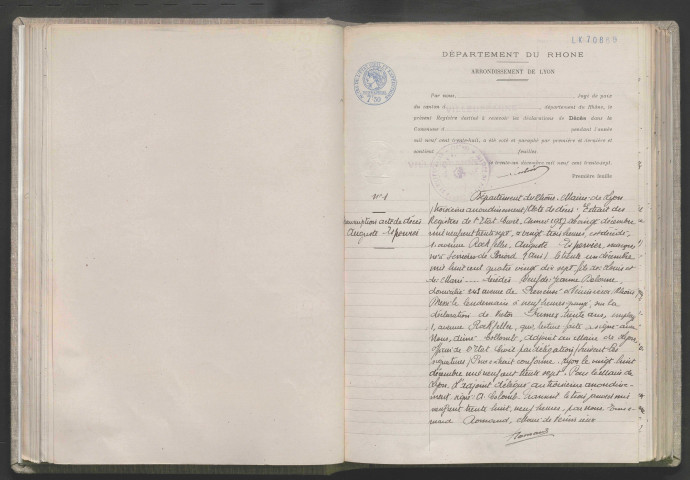 LK70669
DÉPARTEMENT DU RHONE
ARRONDISSEMENT DE LYON
Par nous, Juge de paix
du canton d département du Rhône, le
présent Registre destiné à recevoir les déclarations de Décès dans la
Commune d pendant l'année
mil neuf cent trente-huit, a été coté et paraphé par première et dernière et
contient feuillets
le trente-un décembre mil neuf cent trente-sept.
Première feuille
N° 1
Transcription acte de décès
Auguste
Département du Rhône. Mairie de Lyon
(troisième arrondissement) Acte de décès. Extrait des
Registres de l'Etat Civil (année 1937) Le vingt décembre
mil neuf cent trente sept, à vingt trois heures, est décédé,
1, avenue Rockfeller, Auguste
né à le trente un décembre
mil huit cent quatre vingt dix sept, fils de Louis et
de Marie décédés
domicilié avenue de Vénissieux (Rhône)
Dressé le lendemain à neuf heures, sur la
déclaration de Victor trente ans, employé
1, avenue Rockfeller, qui, lecture faite a signé avec
Nous, Collomb, adjoint au Maire de Lyon
Officier de l'Etat Civil par délégation (suivent les
signatures) Pour extrait conforme. Lyon le vingt huit
décembre mil neuf cent trente sept. Pour le Maire de
Lyon, l'adjoint délégué au troisième arrondisse-
ment, signé: Collomb. Transcrit le trois janvier mil
neuf cent trente huit, neuf heures, par nous
Romand, Maire de Vénissieux